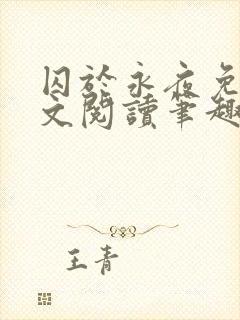 囚於永夜免
文閱讀筆趣
王青